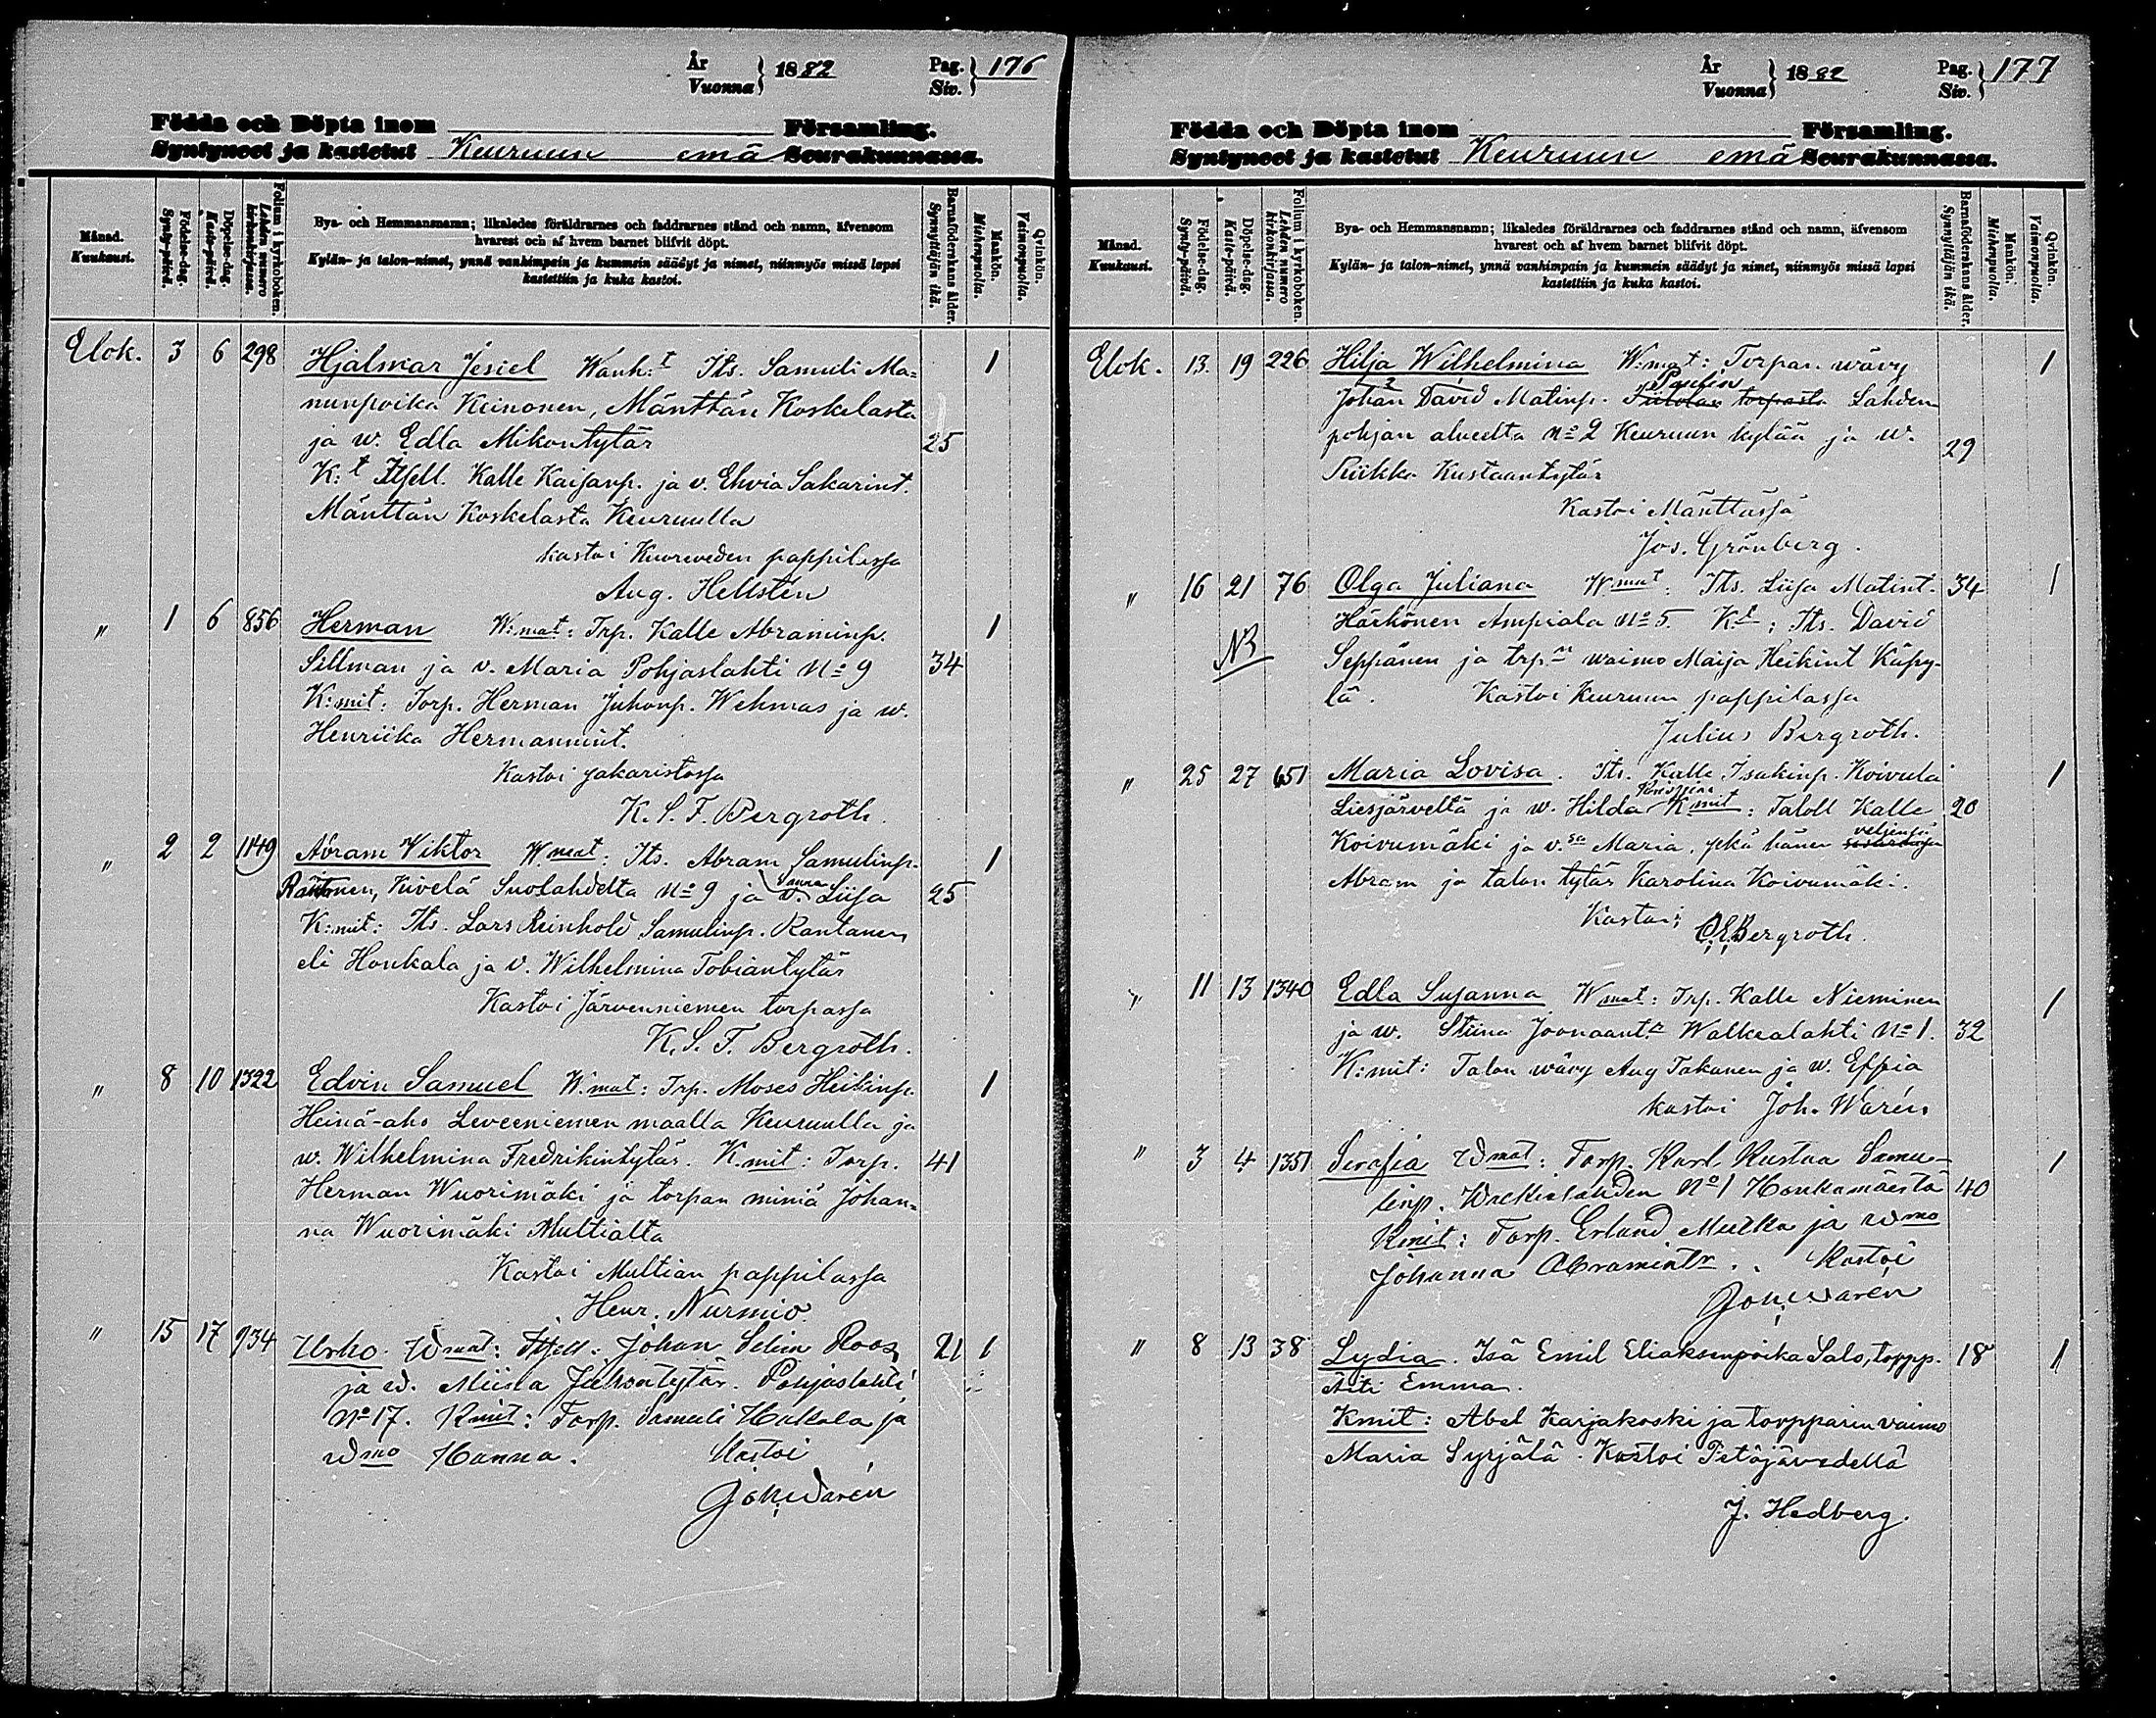 År
Vuonna } 1882
Pag.
Siv. } 176
Födda och Döpta inom Församling.
Syntyneet ja kastetut Keuruun emä Seurakunnassa.
Månad.
Kuukausi.
Födelse-dag.
Synty-päivä.
Döpelse-dag.
Kaste-päivä.
Folium i kyrkoboken.
Lehden numero kirkonkirjassa.
Bya- och Hemmansnamn; likaledes föräldrarnes och faddrarnes stånd och namn, äfvensom
hvarest och af hvem barnet blifvit döpt.
Kylän- ja talon-nimet, ynnä vanhimpain ja kummein säädyt ja nimet, niinmyös missä lapsi
kastettiin ja kuka kastoi.
Barnaföderskans ålder.
Synnyttäjän ikä.
Mankön.
Miehenpuolta.
Qvinkön.
Vaimonpuolta.
Elok. 3 6 298 Hjalmar Jesiel Wanh:t Its. Samuli Ma= 1
nunpoika Keinonen, Mänttän Koskelasta
ja w. Edla Mikontytär 25
K:t Itsell. Kalle Kaisanp. ja v. Elwia Sakarint.
Mänttän Koskelasta Keuruulla
kastoi Kuoreveden pappilassa
Aug. Hellstén
" 1 6 856 Herman W:mat: Trp. Kalle Abraminp. 1
Sillman ja v. Maria Pohjaslahti No 9 34
K:mit: Torp. Herman Juhonp. Wehmas ja w.
Henriika Hermannint.
Kastoi sakaristossa
K. S. F. Bergroth.
" 2 2 1149 Abram Viktor Wmat: Its. Abram Samulinp. 1
Rantanen, Kivelä Suolahdelta No 9 ja v. Sanna Liisa 25
K:mit: Its. Lars Reinhold Samulinp. Rantanen
eli Honkala ja v. Wilhelmina Tobiantytär
Kastoi Järvenniemen torpassa
K. S. F. Bergroth.
" 8 10 1322 Edvin Samuel W:mat: Trp. Moses Heikinp. 1
Heinä-aho Leveeniemen maalla Keuruulla ja
w. Wilhelmina Fredrikintytär. K.mit: Torp. 41
Herman Wuorimäki ja torpan miniä Johan=
na Wuorimäki Multialta
Kastoi Multian pappilassa
Henr. Nurmio
" 15 17 934 Urho. Wmat: Itsell: Johan Selim Roos, 21 1
ja w. Miina Juhontytär. Pohjaslahti
No 17. Kmit: Torp. Samuli Hakala ja
Wmo Hanna. Kastoi
Joh. Warén
År
Vuonna } 1882
Pag.
Siv. } 177
Födda och Döpta inom Församling.
Syntyneet ja kastetut Keuruun emä Seurakunnassa.
Månad.
Kuukausi.
Födelse-dag.
Synty-päivä.
Döpelse-dag.
Kaste-päivä.
Folium i kyrkoboken.
Lehden numero kirkonkirjassa.
Bya- och Hemmansnamn; likaledes föräldrarnes och faddrarnes stånd och namn, äfvensom
hvarest och af hvem barnet blifvit döpt.
Kylän- ja talon-nimet, ynnä vanhimpain ja kummein säädyt ja nimet, niinmyös missä lapsi
kastettiin ja kuka kastoi.
Barnaföderskans ålder.
Synnyttäjän ikä.
Mankön.
Miehenpuolta.
Qvinkön.
Vaimonpuolta.
Elok. 13. 19 226 Hilja Wilhelmina W:mat: Torpan vävy 1
Johan David Matinp. Paulin Tiitolan torpasta Lahden
pohjan alueelta No 2 Keuruun kylää ja w. 29
Riikka Kustaantytär
Kastoi Mänttässä
Jos. Grönberg.
" 16 21 76 Olga Juliana W:mat: Its. Liisa Matint. 34 1
Härkönen Ampiala No 5. Kt: Its. David
NB Seppänen ja trp:n waimo Maija Heikint Käpy-
lä. Kastoi Keuruun pappilassa
Julius Bergroth.
" 25 27 651 Maria Lovisa. Its. Kalle Isakinp. Koivula 1
Liesjärveltä ja w. Hilda K:mit: Taloll Kalle 20
Koivumäki ja v:sa Maria, sekä hänen veljensä
Abram ja talon tytär Karolina Koivumäki.
Kastoi: O. E. Bergroth.
" 11 13 1340 Edla Susanna W:mat: Trp. Kalle Nieminen 1
ja w. Stiina Joonaant:r Walkealahti No 1. 32
K:mit: Talon wävy Aug Takanen ja w. Eppia
kastoi Joh. Warén
" 3 4 1351 Serafia Wmat: Torp. Karl Kustaa Samu- 1
linp. Walkialahden No 1 Honkamäestä 40
Kmit: Torp. Erland Mulka ja Wmo
Johanna Abramintr. Kastoi
Joh. Warén
" 8 13 38 Lydia. Isä Emil Eliaksenpoika Salo, torpp. 18 1
Äiti Emma.
Kmit: Abel Karjakoski ja torpparin vaimo
Maria Syrjälä. Kastoi Petäjävedellä
J. Hedberg.